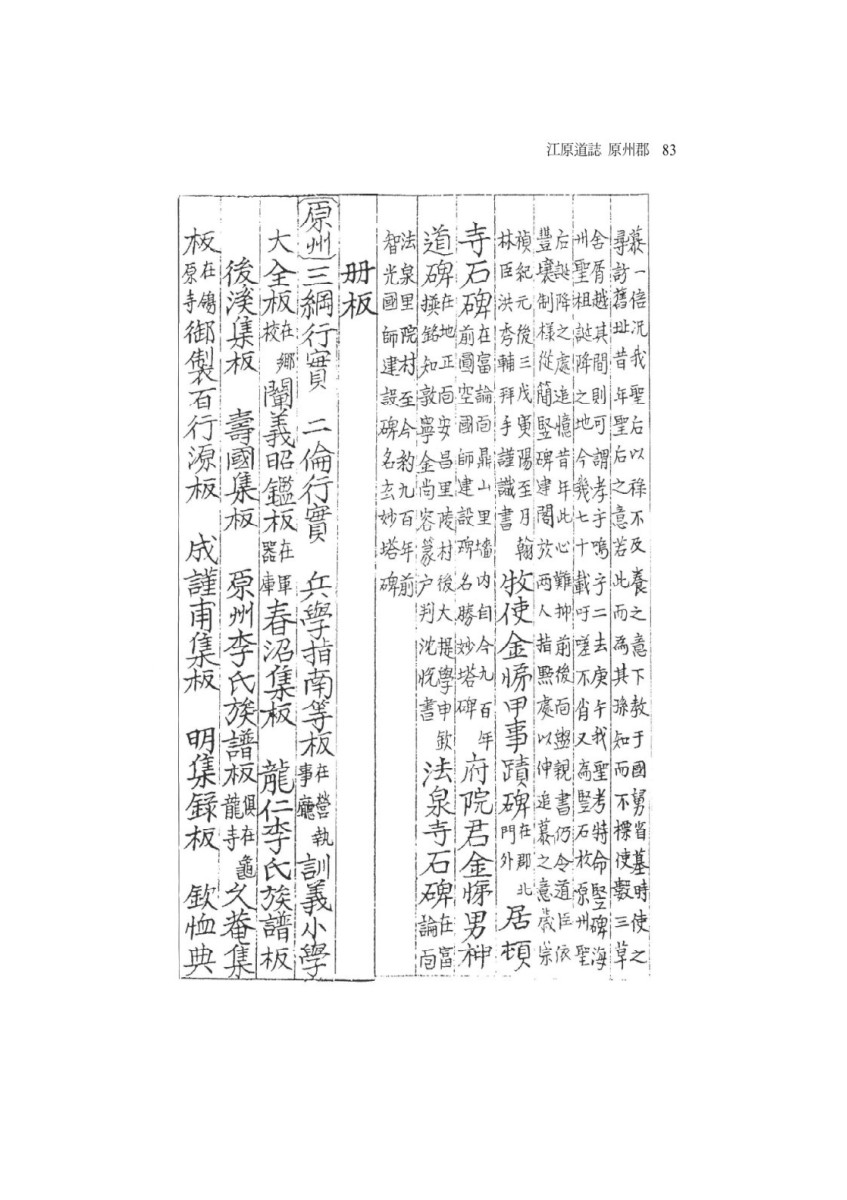 江原道誌 原州郡 83
慕一倍況我聖后以祿不及養之意下敎于國舅省墓時使之
尋訪舊址昔年聖后之意若此而爲其孫知而不標使數三草
舍屑越其間則可謂孝乎嗚乎二去庚午我聖考特命竪碑海
州聖祖誕降之地今幾七十載吁嗟不肖又爲竪石於原州聖
后誕降之處追憶昔年此心難抑前後面親書仍令道臣依
豐壤制樣從簡竪碑建閣於兩人指點處以伸追慕之意歲崇
禎紀元後三戊寅陽至月翰林臣洪秀輔拜手謹識書 牧使金悌甲事蹟碑在郡北門外 居頓
寺石碑在富論面鼎山里墻內自今九百年前圓空國師建設碑名勝妙塔碑 府院君金悌男神
道碑在地正面安昌里陵村後大提學申欽撰銘知敦寧金尙容篆戶判沈悅書 法泉寺石碑在富論面
法泉里院村至今約九百年前
智光國師建設碑名玄妙塔碑
册板
原州 三綱行實 二倫行實 兵學指南等板在營執事廳 訓義小學
大全板在鄕校 闡義昭鑑板在軍器庫 春沼集板 龍仁李氏族譜板
後溪集板 壽國集板 原州李氏族譜板俱在龜龍寺 久菴集
板在原寺 御製百行源板 成謹甫集板 明集錄板 欽恤典